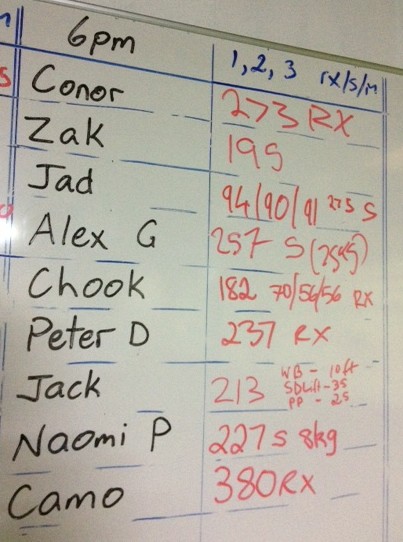 6pm 1, 2, 3 rx/s/m
Conor 273 RX
Zak 195
Jad 94/90/91 275 S
Alex G 257 S
Chook 182 70/56/56 RX
Peter D 237 RX
Jack 213 WB - 10ft
SDLift - 35
PP - 25
Naomi P 227 s 8kg
Camo 380 RX